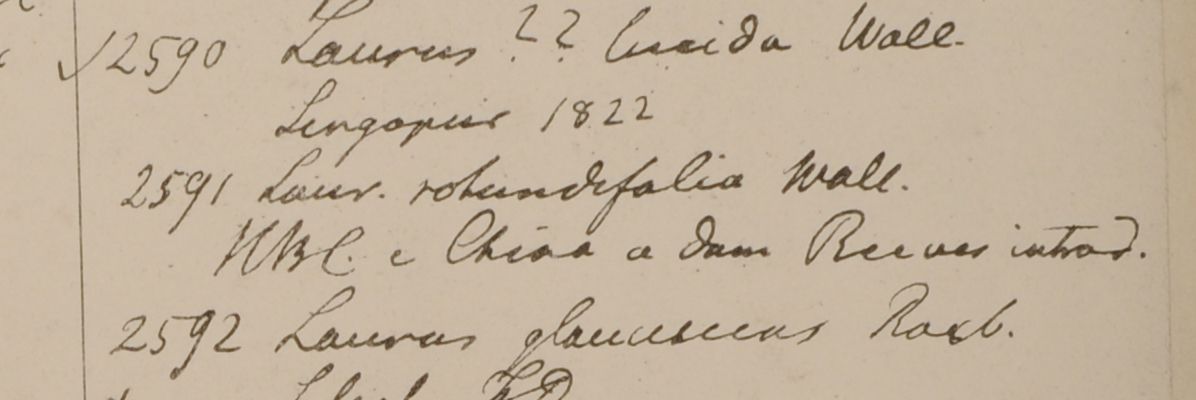 2590 Laurus ?? lucida Wall.
Singapur 1822
2591 Laur. rotundifolia Wall.
HBC. e China a dom Reeves introd.
2592 Laurus glaucescens Roxb.